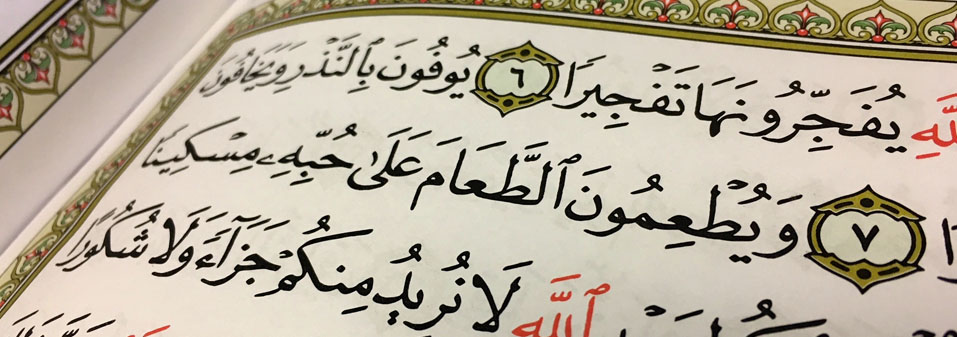 للَّهِ يُفَجِّرُونَهَا تَفۡجِيرٗا ٦ يُوفُونَ بِٱلنَّذۡرِ وَيَخَافُونَ
٧ وَيُطۡعِمُونَ ٱلطَّعَامَ عَلَىٰ حُبِّهِۦ مِسۡكِينٗا
ٱللَّهِ لَا نُرِيدُ مِنكُمۡ جَزَآءٗ وَلَا شُكُورًا